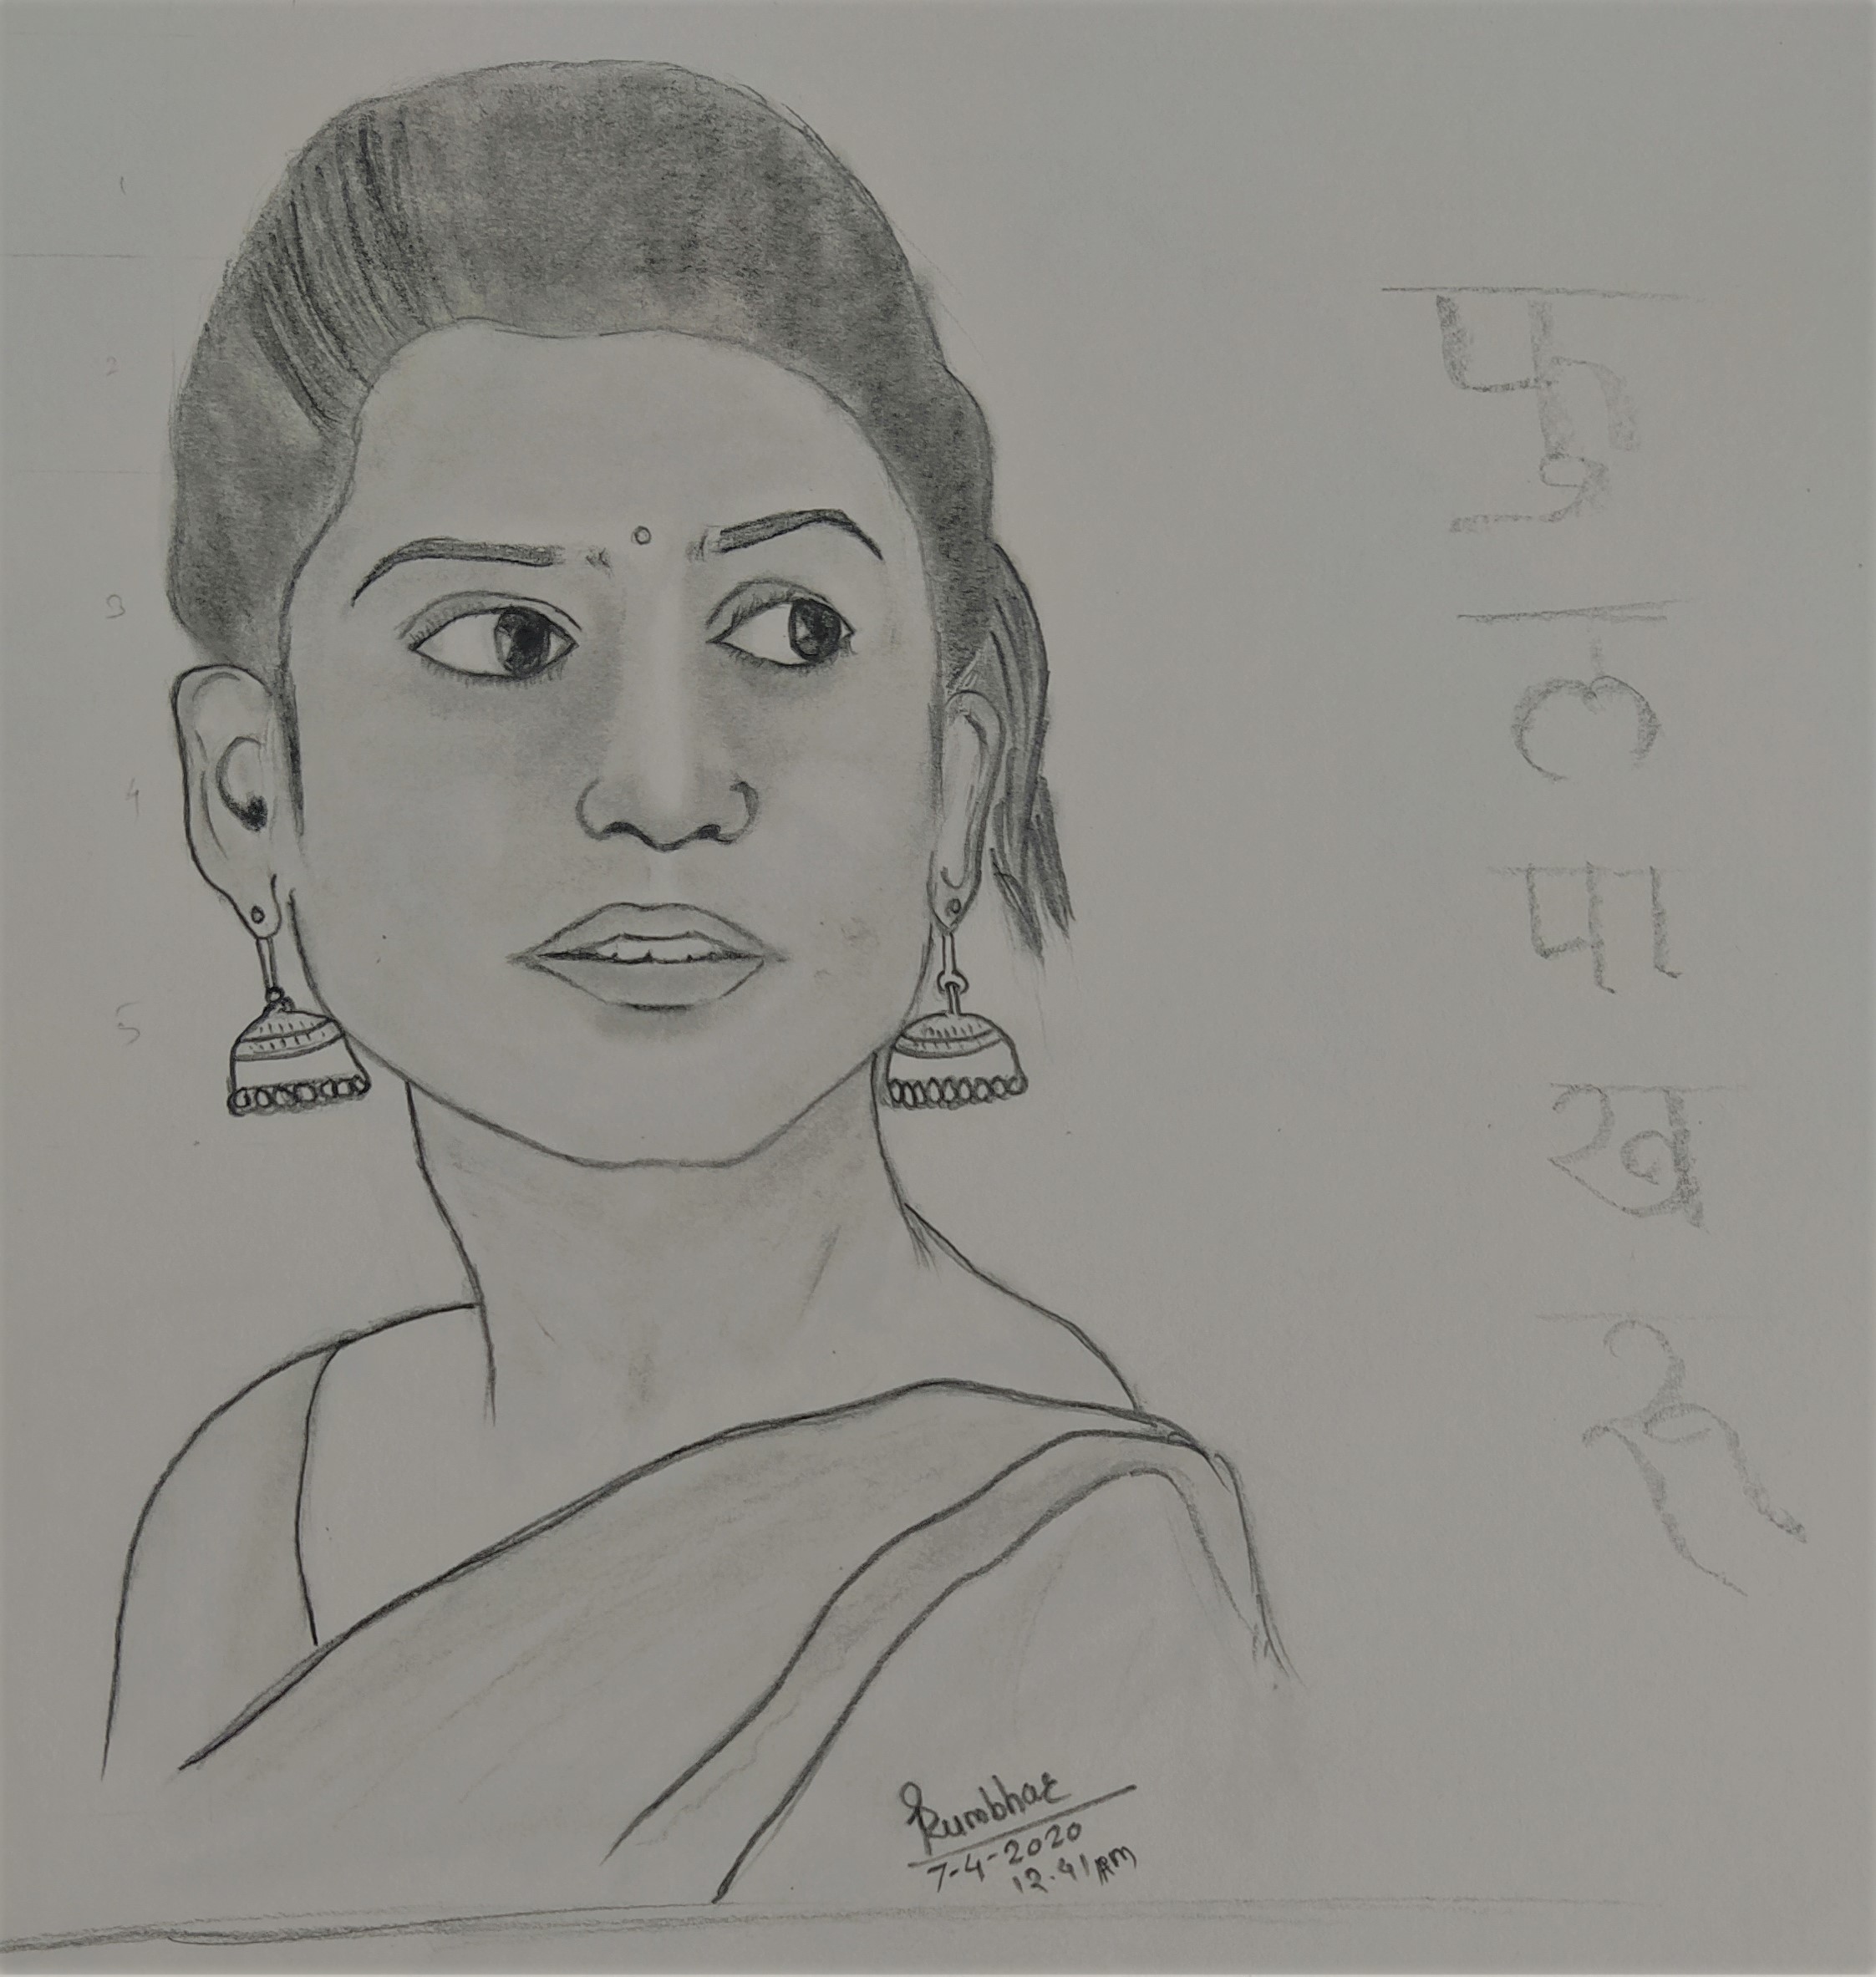 1
2
3
4
5
फुलपाखरू
Kumbhar
7-4-2020
12.41pm